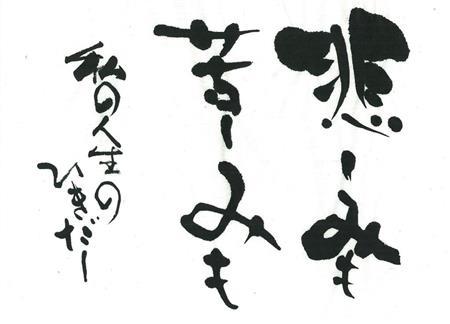 悲しみも
苦しみも
私の人生の
ひきだし